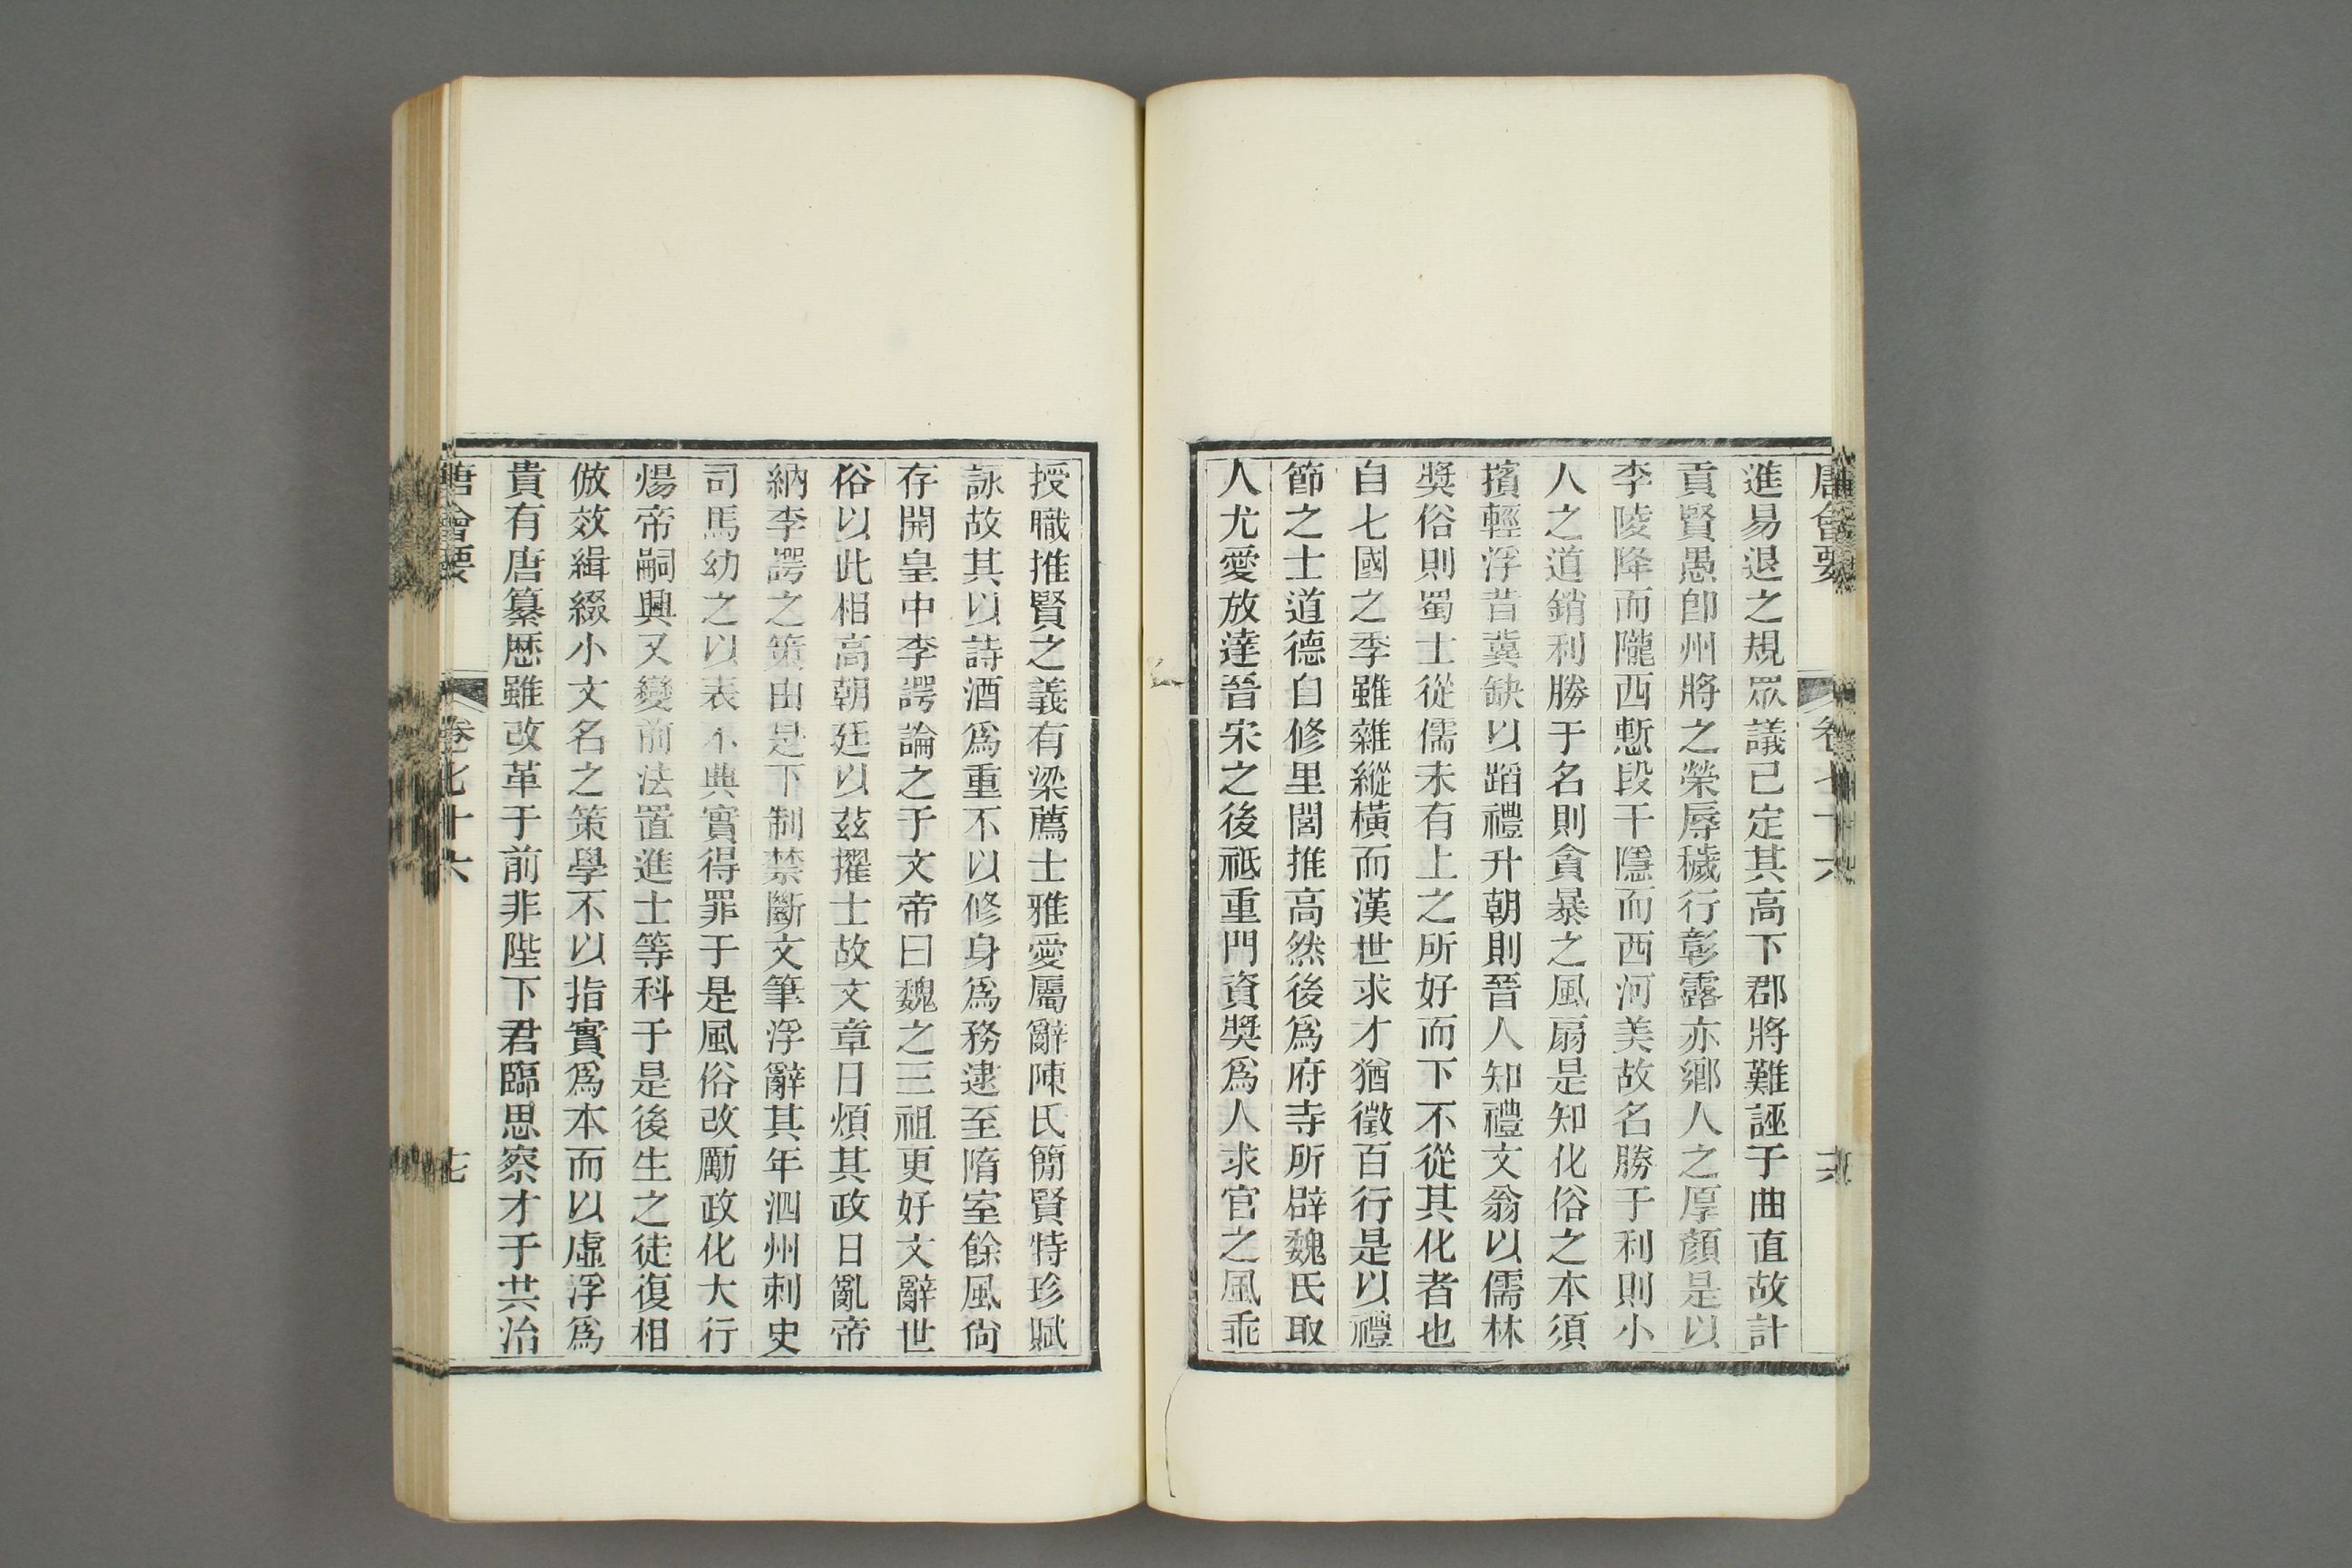 唐會要 卷七十六
進易退之規眾議己定其高下郡將難誣于曲直故計
貢賢愚卽州將之榮辱穢行彰露亦鄉人之厚顏是以
李陵降而隴西慙段干隱而西河美故名勝于利則小
人之道銷利勝于名則貪暴之風扇是知化俗之本須
擯輕浮昔冀缺以蹈禮升朝則晉人知禮文翁以儒林
奬俗則蜀士從儒未有上之所好而下不從其化者也
自七國之季雖雜縱橫而漢世求才猶徵百行是以禮
節之士道德自修里閭推高然後爲府寺所辟魏氏取
人尤愛放達晉宋之後祗重門資奬爲人求官之風乖
授職推賢之義有梁薦士雅愛屬辭陳氏簡賢特珍賦
詠故其以詩酒爲重不以修身爲務逮至隋室餘風尙
存開皇中李諤論之于文帝曰魏之三祖更好文辭世
俗以此相高朝廷以茲擢士故文章日煩其政日亂帝
納李諤之策由是下制禁斷文筆浮辭其年泗州刺史
司馬幼之以表不典實得罪于是風俗改勵政化大行
煬帝嗣興又變前法置進士等科于是後生之徒復相
倣效緝綴小文名之策學不以指實爲本而以虛浮爲
貴有唐纂歷雖改革于前非陛下君臨思察才于共治
唐會要 卷七十六 十七